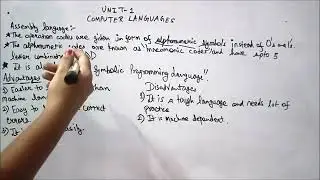 UNIT-1
COMPUTER LANGUAGES
Assembly language:-
*The operation codes are given in form of alphanumeric symbols instead of 0's & 1's.
*The alphanumeric codes are known as mneomonic codes and have upto 5
letter combination
*It is al Symbolic Programming language"
Advantages Disadvantages
1) Easier to than 1) It is a tough language and needs lot of
machine practice
2) Easy to correct 2) It is machine dependent.
errors
3) It is easily.